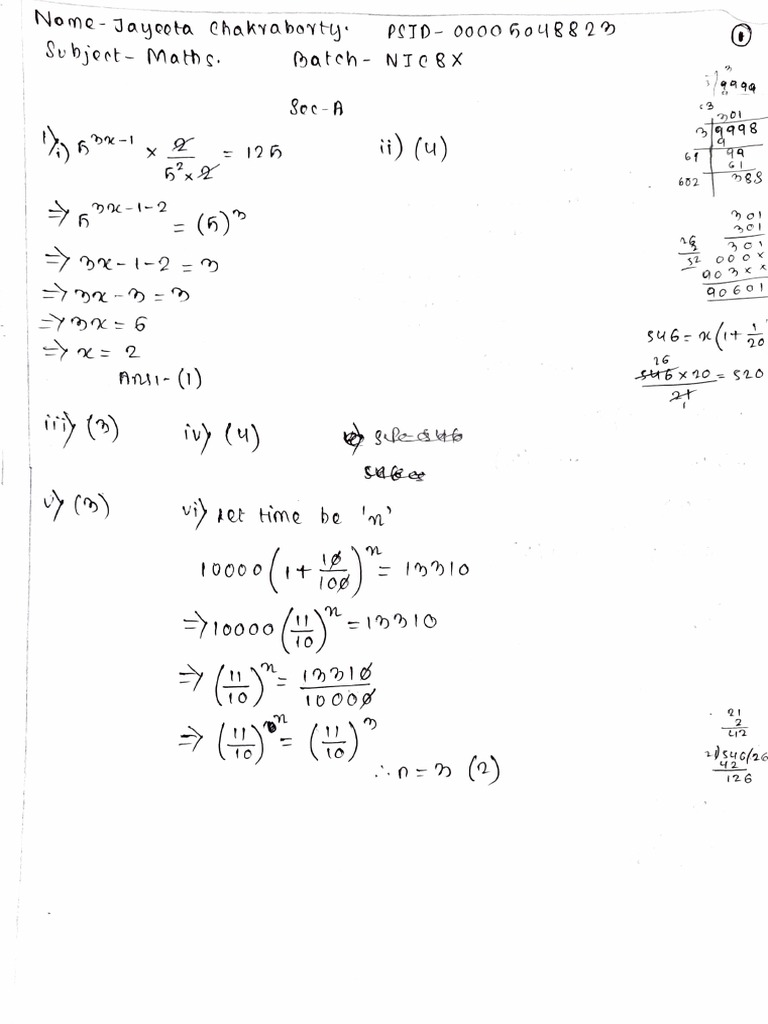 Name - Jayeeta Chakraborty. PSID - 00005048823
Subject - Maths. Batch - NIC8X
①
Sec-A
1) i) 5^(3x-1) × 2/(5² × 2) = 125
ii) (4)
⇒ 5^(3x-1-2) = (5)^3
⇒ 3x-1-2 = 3
⇒ 3x-3 = 3
⇒ 3x = 6
⇒ x = 2
Ans:- (1)
iii) (3) iv) (4)
v) (3) vi) Let time be 'n'
10000 (1 + 10/100)^n = 13310
⇒ 10000 (11/10)^n = 13310
⇒ (11/10)^n = 13310/10000
⇒ (11/10)^n = (11/10)^3
∴ n = 3 (2)
9999
301
3 | 9998
9
61 | 99
61
602 | 388
301
301
301
000×
903××
90601
26
2
52
546 = x(1 + 1/20
26
546 × 20/21 = 520
1
21
2
42
21)546/26
42
126